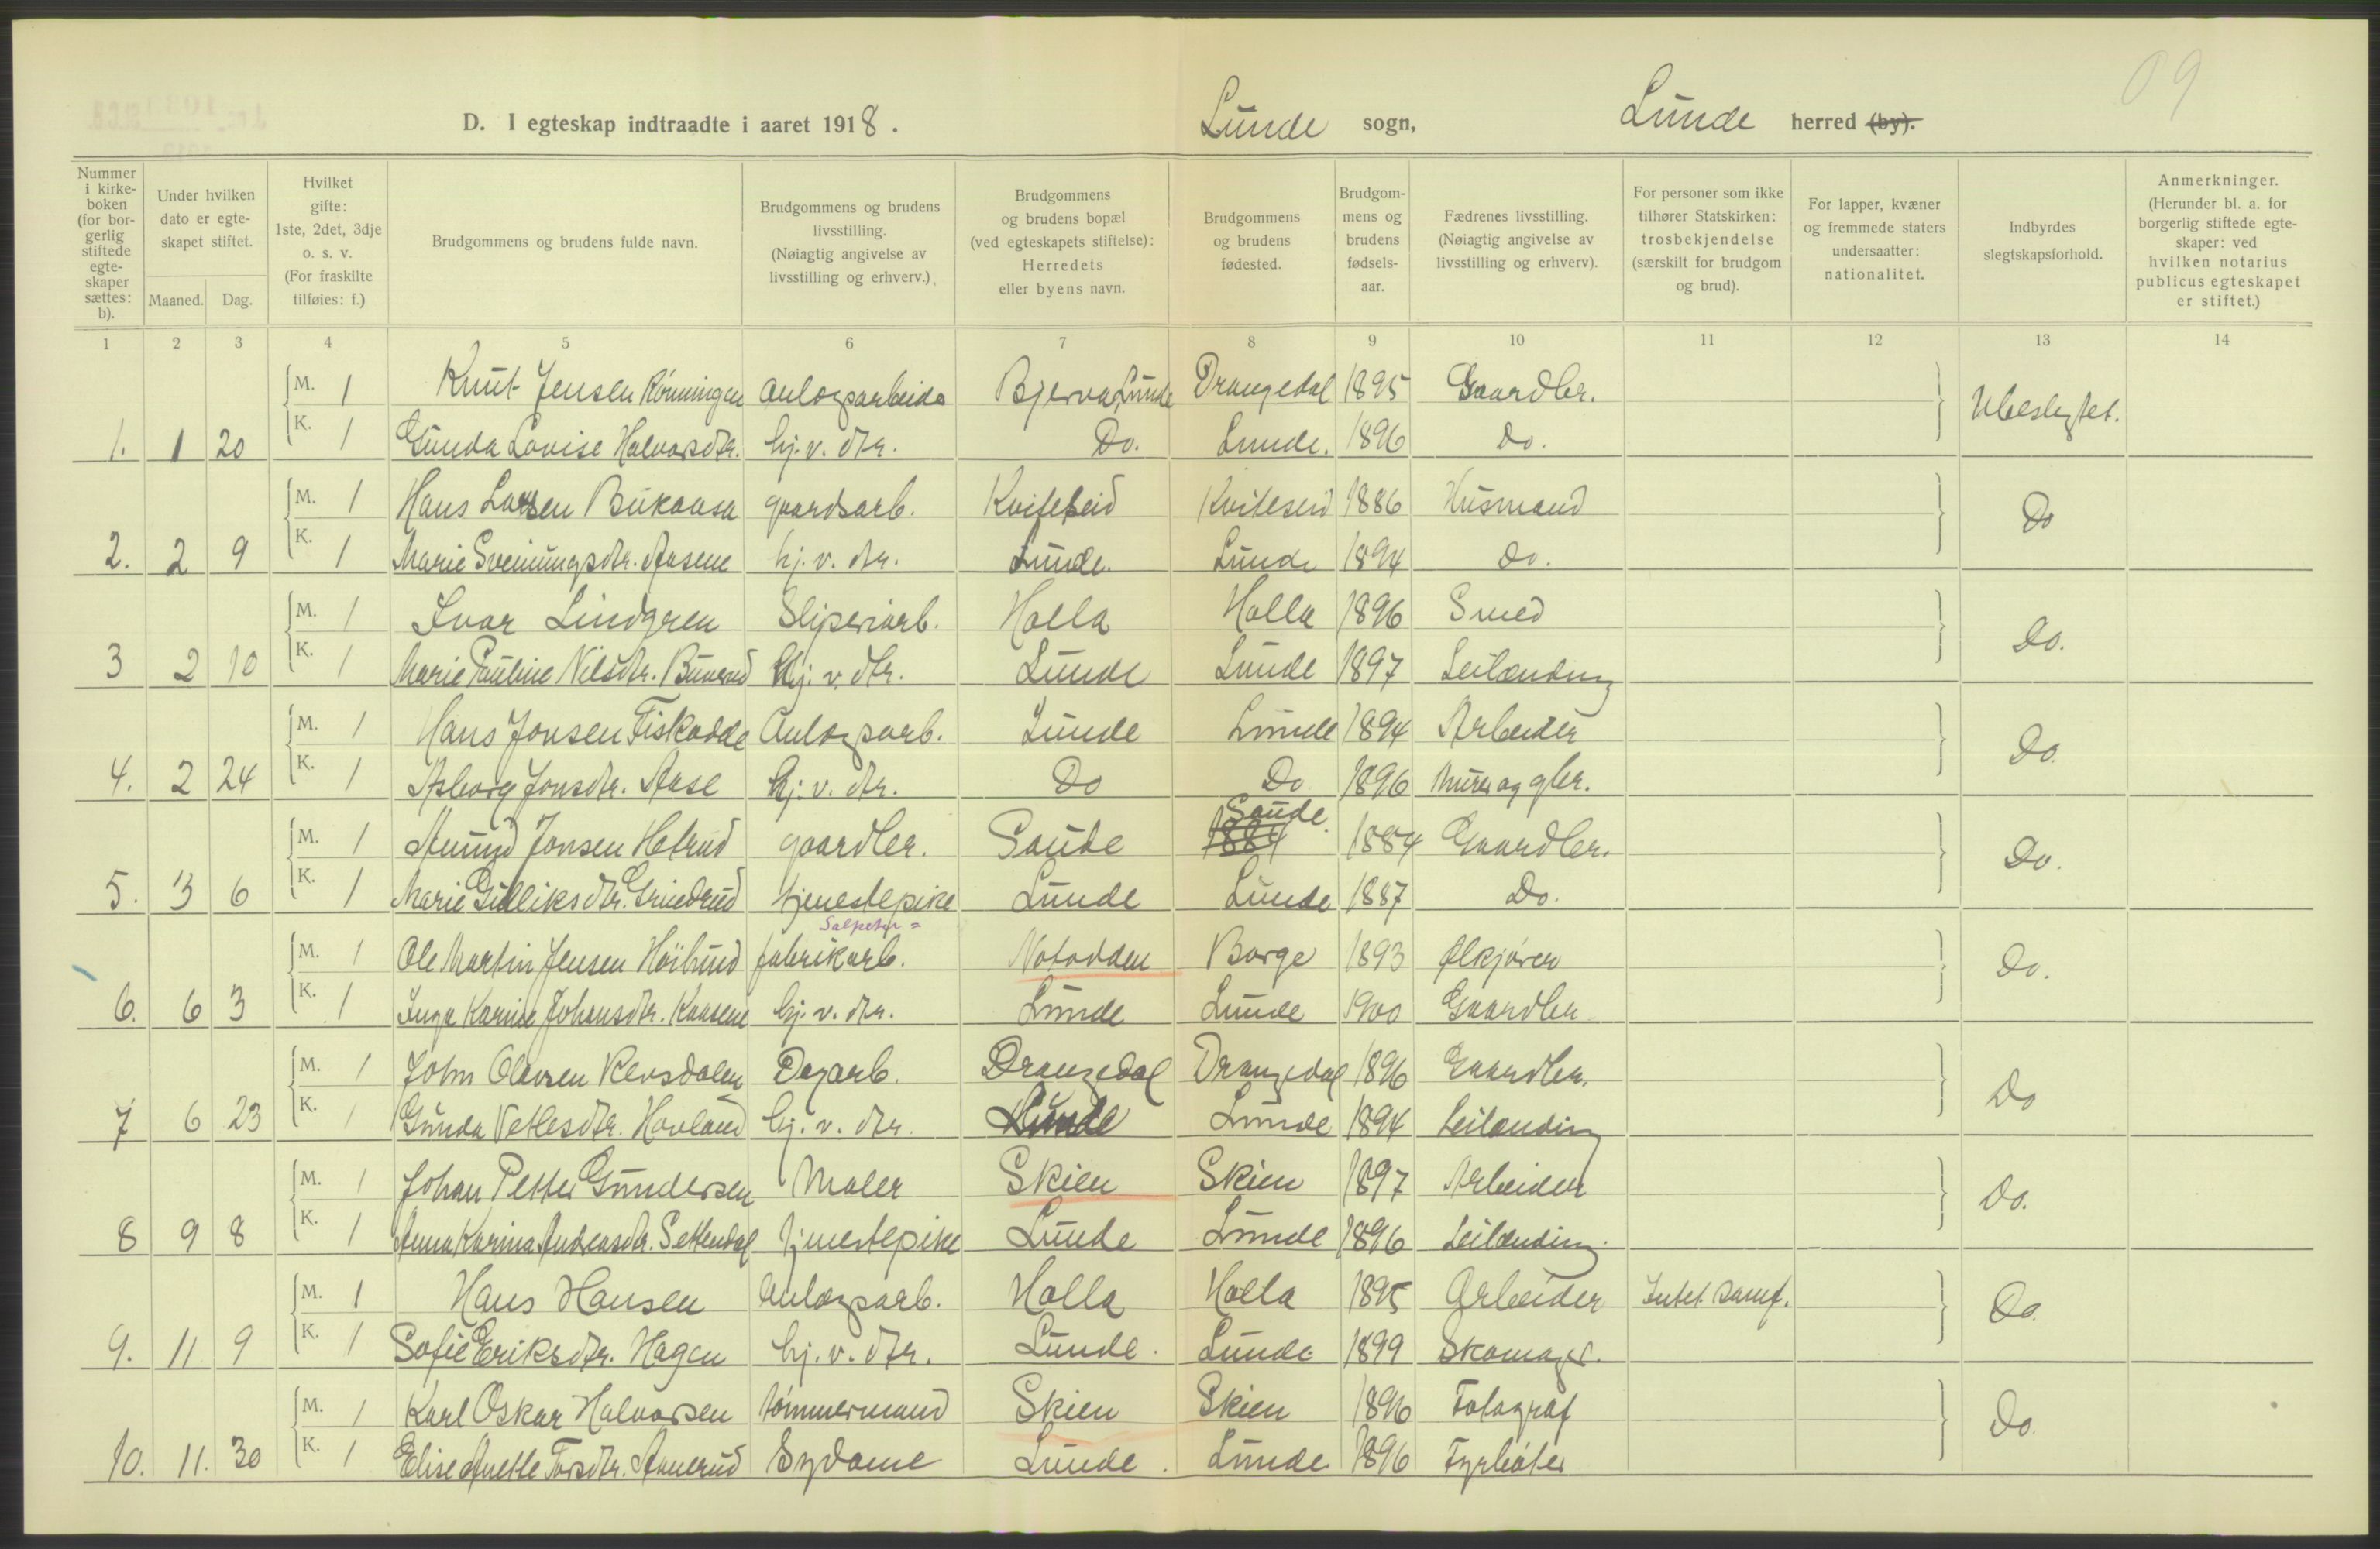 09
D. I egteskap indtraadte i aaret 1918. Lunde sogn, Lunde herred (by).
Nummer i kirke- boken (for bor- gerlig stiftede egte- skaper sættes: b).
Under hvilken dato er egte- skapet stiftet.
Maaned. Dag.
Hvilket gifte: 1ste, 2det, 3dje o. s. v. (For fraskilte tilføies: f.)
Brudgommens og brudens fulde navn.
Brudgommens og brudens livsstilling. (Nøiagtig angivelse av livsstilling og erhverv.)
Brudgommens og brudens bopæl (ved egteskapets stiftelse): Herredets eller byens navn.
Brudgommens og brudens fødested.
Brudgom- mens og brudens fødsels- aar.
Fædrenes livsstilling. (Nøiagtig angivelse av livsstilling og erhverv).
For personer som ikke tilhører Statskirken: trosbekjendelse (særskilt for brudgom og brud).
For lapper, kvæner og fremmede staters undersaatter: nationalitet.
Indbyrdes slegtskapsforhold.
Anmerkninger. (Herunder bl. a. for borgerlig stiftede egte- skaper: ved hvilken notarius publicus egteskapet er stiftet.)
1 2 3 4 5 6 7 8 9 10 11 12 13 14
M. 1 Knut Jensen Rönningen Anlægsarbeide Bjerva Lunde Drangedal 1895 Gaardbr. Ubeslegtet.
1. 1 20 K. 1 Gunda Lovise Halvorsdtr. hj. v. dtr. Do. Lunde. 1896 do.
M. 1 Hans Larsen Bukaasa gaardsarb. Kviteseid Kviteseid 1886 Husmand Do
2. 2 9 K. 1 Marie Sveinungsdtr. Aasene hj. v. dtr. Lunde. Lunde 1894 do.
M. 1 Ivar Lindgren Sliperiarb. Holla Holla 1896 Smed Do.
3 2 10 K. 1 Marie Pauline Nilsdtr. hj. v. dtr. Lunde Lunde 1897 Leilænding
M. 1 Hans Jonsen Fiskodde Anlægsarb. Lunde Lunde 1894 Arbeider Do.
4. 2 24 K. 1 Asborg Jonsdtr. Aase hj. v. dtr. Do Do 1896 Murer og gbr.
Saude.
M. 1 Amund Jonsen gaardbr. Saude 1884 1884 Gaardbr. Do.
5. 3 6 K. 1 Marie Gulliksdtr. Grinderud tjenestepike Lunde Lunde 1887 Do.
Salpeter=
M. 1 Ole Martin Jensen fabrikarb. Notodden Borge 1893 Ølkjører Do.
6. 6 3 K. 1 Inga Karine Johansdtr. Kaasene hj. v. dtr. Lunde Lunde 1900 Gaardbr
M. 1 John Olavsen Dagarb. Drangedal Drangedal 1896 Gaardbr. Do
7 6 23 K. 1 Gunda Vetlesdtr. Hovland hj. v. dtr. Lunde Lunde 1894 Leilænding
M. 1 Johan Petter Gundersen Maler Skien Skien 1897 Arbeider Do.
8 9 8 K. 1 Anna Karina Andreasdtr. Settendal tjenestepike Lunde Lunde 1896 Leilænding.
M. 1 Hans Hansen Anlægsarb. Holla Holla 1895 Arbeider Intet samf. Do.
9. 11 9 K. 1 Sofie Eriksdtr. Hagen hj. v. dtr. Lunde. Lunde 1899 Skomager.
M. 1 Karl Oskar Halvorsen tømmermand Skien Skien 1896 Fotograf Do.
10. 11. 30 K. 1 Elise Anette Torsdtr. Aanerud Sydame Lunde. Lunde 1896 Fyrbøter